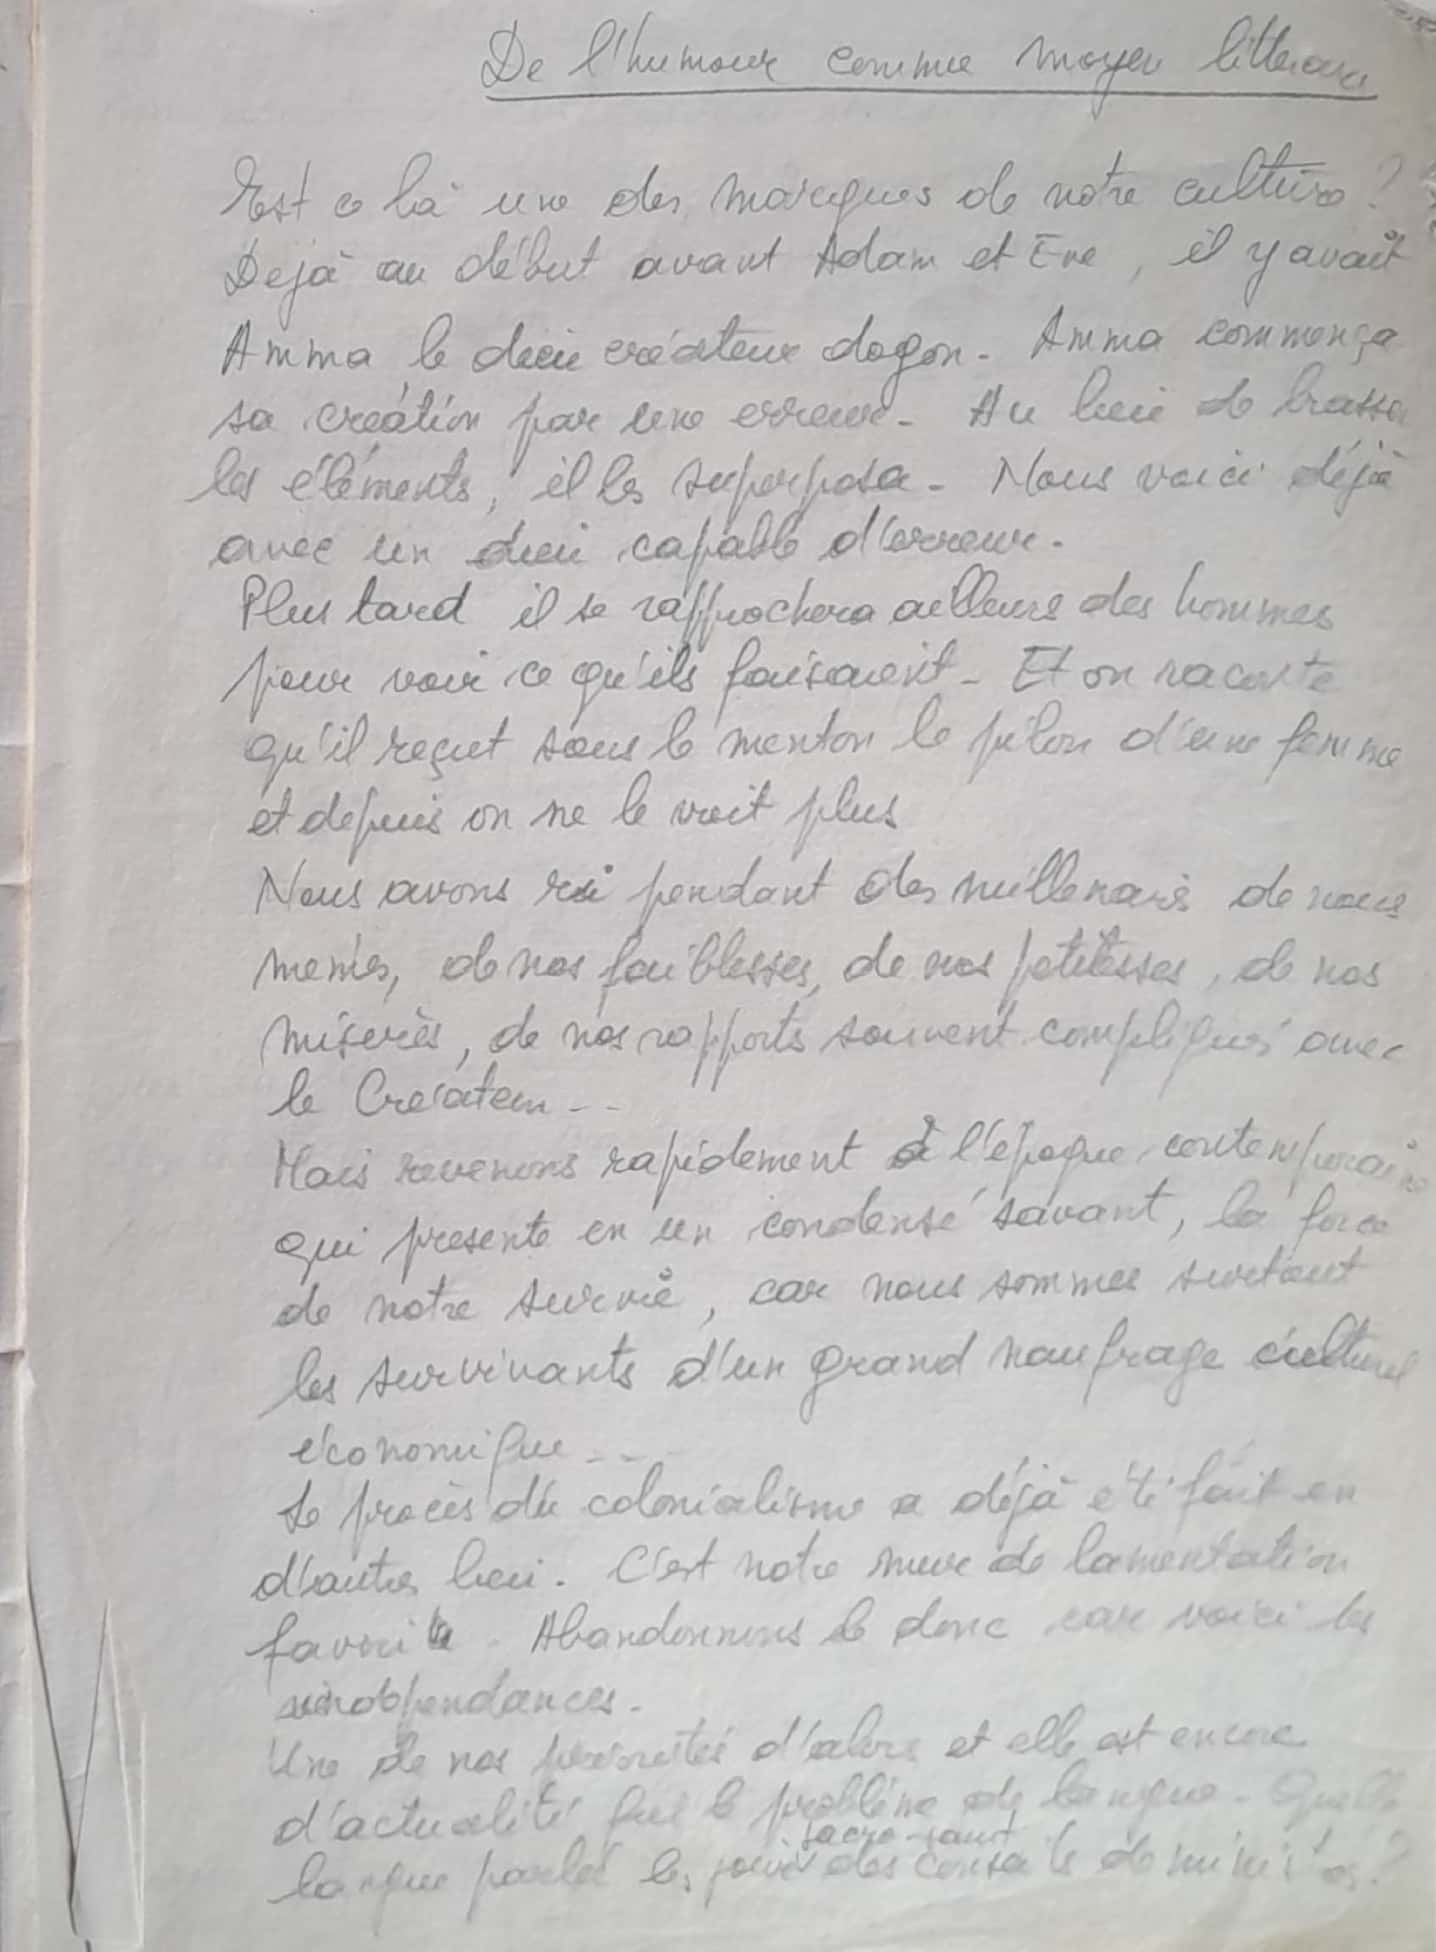 De l'humour comme moyen litteraire
Est ce là une des marques de notre culture ?
Dejà au début avant Adam et Eve, il y avait
Amma le dieu créateur dogon. Amma commença
sa création par une erreur. Au lieu de brasser
les éléments, il les superposa. Nous voici déjà
avec un dieu capable d'erreur.
Plus tard il se rapprochera ailleurs des hommes
pour voir ce qu'ils faisaient. Et on raconte
qu'il reçut sous le menton le pilon d'une femme
et depuis on ne le voit plus
Nous avons ri pendant des millenaires de nous
memes, de nos faiblesses, de nos petitesses, de nos
misères, de nos rapports souvent compliqués avec
le Créateur..
Mais revenons rapidement à l'époque contemporaine
qui presente en un condensé savant, la force
de notre survie, car nous sommes surtout
les survivants d'un grand naufrage culturel
économique...
Le procès du colonialisme a déjà été fait en
d'autres lieu. C'est notre mur de lamentation
favori. Abandonnons le donc car voici les
indépendances.
Une de nos priorités d'alors et elle est encore
d'actualité fut le problème de langue. Quelle
langue parler les jours sacro-saint des conseils de ministres ?